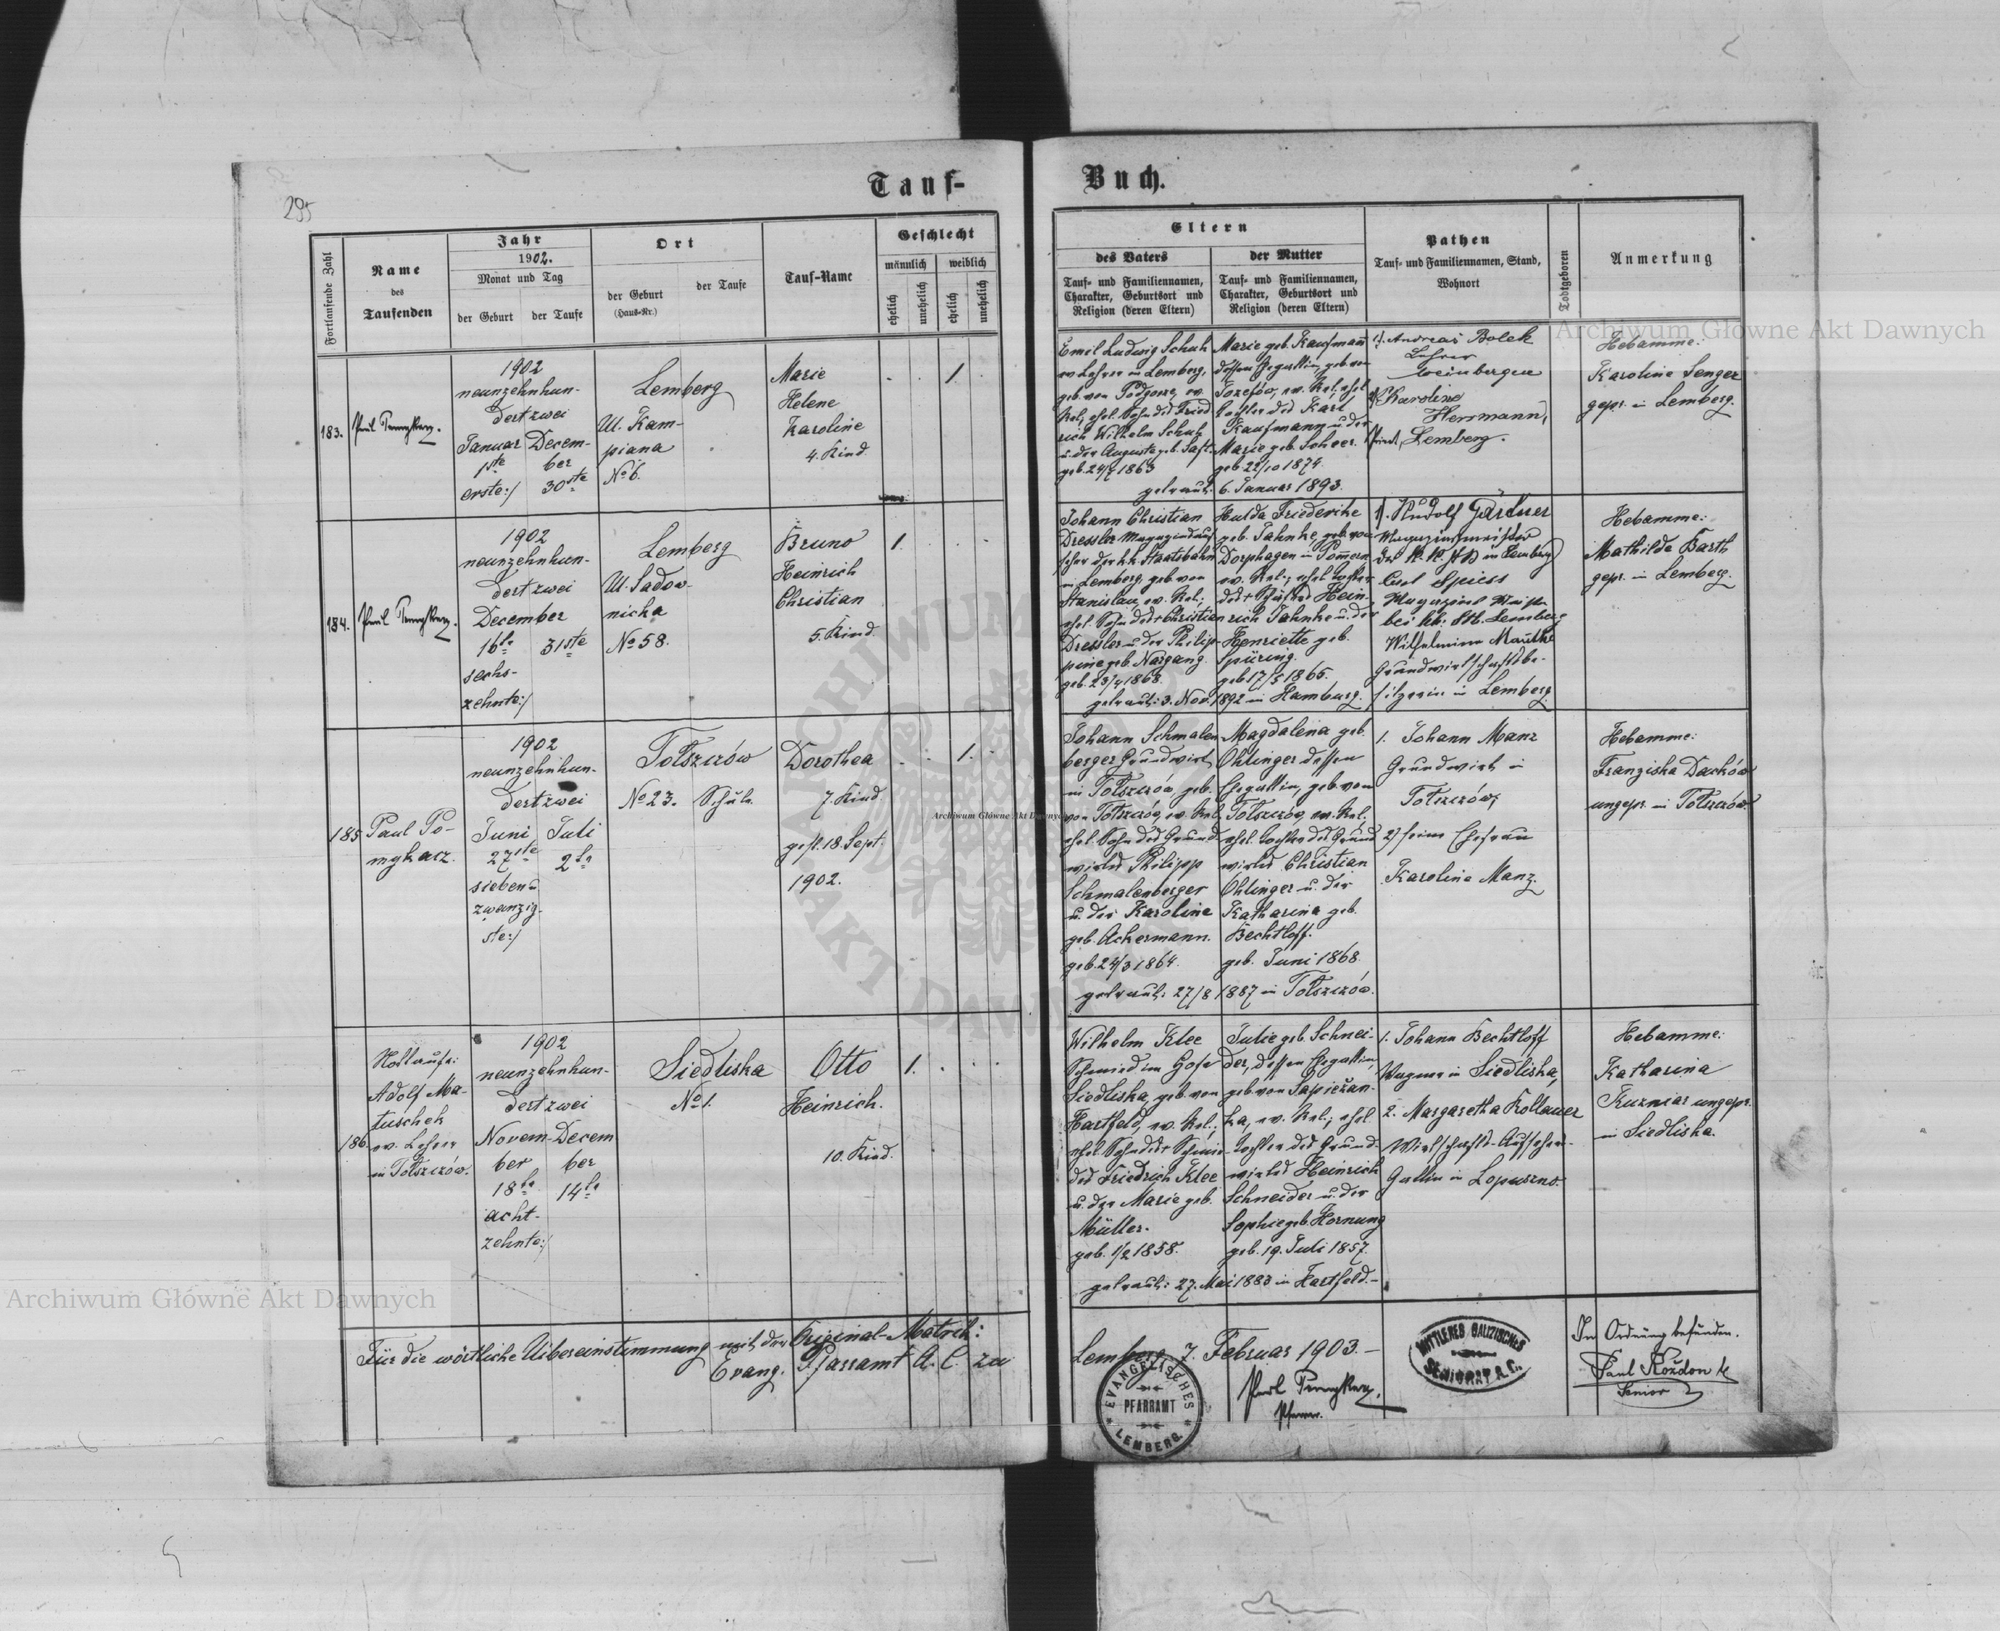 295
Tauf-
Buch.
Fortlaufende Zahl
Name
des
Taufenden
Jahr
1902.
Monat und Tag
der Geburt
der Taufe
Ort
der Geburt
(Haus-Nr.)
der Taufe
Tauf-Name
Geschlecht
männlich
weiblich
ehelich
unehelich
ehelich
unehelich
Eltern
des Vaters
Tauf- und Familiennamen,
Charakter, Geburtsort und
Religion (deren Eltern)
der Mutter
Tauf- und Familiennamen,
Charakter, Geburtsort und
Religion (deren Eltern)
Pathen
Tauf- und Familiennamen, Stand,
Wohnort
Todtgeboren
Anmerkung
183.
1902
neunzehnhun-
dertzwei
Januar
1ste
erste:/
Decem-
ber
30ste
Lemberg
Ul. Kam-
piana
No 6.
Marie
Helene
Karoline
4. Kind
1.
Emil Ludwig Schuh
ev. Lehrer in Lemberg,
geb. von Podgorze, ev.
Rel., ehel. Sohn des Fried
rich Wilhelm Schuh
u. der Auguste geb.
geb. 24/7 1863
Marie geb. Kaufmann
dessen Ehegattin, geb. von
Josefów, ev. Rel., ehel.
Tochter des Karl
Kaufmann u. der
Marie geb. Scheer.
geb. 22/10 1874
getraut: 6. Januar 1893.
1/. Andreas Bolek
Lehrer
Weinbergen
2/ Karoline
Herrmann,
Lemberg.
Hebamme:
Karoline Senger
gepr. in Lemberg.
184.
1902
neunzehnhun-
dertzwei
December
16te
sechs-
zehnte:/
31ste
Lemberg
Ul. Sadow-
nicka
No 58.
Bruno
Heinrich
Christian
5. Kind.
1.
Johann Christian
Dressler Magazinsauf
seher der k.k. Staatsbahn
in Lemberg, geb. von
Stanislau, ev. Rel.,
ehel. Sohn des + Christian
Dressler u. der Philip-
pine geb. Nargang.
geb. 23/4 1868.
Hulda Friederike
geb. Jahnke, geb. von
Dorphagen in Pommern
ev. Rel., ehel. Tochter
des + Schäfers Hein
rich Jahnke u. der
Henriette geb.
Spüring.
geb. 17/5 1865.
getraut: 3. Nov. 1892 in Hamburg.
1/. Rudolf Gärtner
Magazinsmeister
der k. k. St B in Lemberg
Carl Spiess
Magazins Meister
bei kk. Stb. Lemberg
Wilhelmine Mauthe
Grundwirtschaftsbe-
sitzerin in Lemberg.
Hebamme:
Mathilde Barth
gepr. in Lemberg.
185
Paul Po-
mykacz.
1902
neunzehnhun-
dertzwei
Juni
27ste
sieben u.
zwanzig-
ste:/
Juli
2te
Tołszczów
No 23.
Schule.
Dorothea
7. Kind
gest. 18. Sept.
1902.
1.
Johann Schmalen
berger Grundwirt
in Tołszczów, geb.
von Tołszczów, ev. Rel.
ehel. Sohn des Grund
wirts Philipp
Schmalenberger
u. der Karoline
geb. Ackermann.
geb. 24/3 1864.
Magdalena geb.
Ohlinger dessen
Ehegattin, geb. von
Tołszczów, ev. Rel.,
ehel. Tochter des Grund
wirts Christian
Ohlinger u. der
Katharina geb.
Bechtloff.
geb. Juni 1868.
getraut: 27/8 1887 in Tołszczów.
1. Johann Manz
Grundwirt in
Tołszczów,
2/ seine Ehefrau
Karoline Manz.
Hebamme:
Franziska
ungepr. in Tołszczów
186.
Nottaufe:
Adolf Ma-
tuschek
ev. Lehrer
in Tołszczów.
1902
neunzehnhun-
dertzwei
Novem-
ber
18te
acht-
zehnte:/
Decem
ber
14te
Siedliska
No 1.
Otto
Heinrich.
10. Kind.
1.
Wilhelm Klee
Schmied im Hofe
Siedliska, geb. von
Hartfeld, ev. Rel.,
ehel. Sohn des + Schmie-
des Friedrich Klee
u. der Marie geb.
Müller.
geb. 1/2 1858.
Julie geb. Schnei-
der, dessen Ehegattin,
geb. von Sapieżan-
ka, ev. Rel., ehel.
Tochter des Grund-
wirts Heinrich
Schneider u. der
Sophie geb. Hornung
geb. 19. Juli 1857.
getraut: 27. Mai 1883 in Hartfeld.-
1. Johann Bechtloff
Wagner in Siedliska,
2. Margaretha Kollauer
Wirtschafts-Aufsehers-
Gattin in Lopuszna.
Hebamme:
Katharina
Kuzniar ungepr.
in Siedliska.
Für die wörtliche Uibereinstimmung mit der Original-Matrik:
Evang. Pfarramt A. C. zu
Lemberg, 7. Februar 1903.-
Pfarrer.
EVANGELISCHES
PFARRAMT
LEMBERG.
MITTLERES GALIZISCHES
SENIORAT A.C.
In Ordnung befunden.
Paul Kozdon
Senior
Archiwum Główne Akt Dawnych
Archiwum Główne Akt Dawnych
Archiwum Główne Akt Dawnych
ARCHIWUM
AKT DAWN